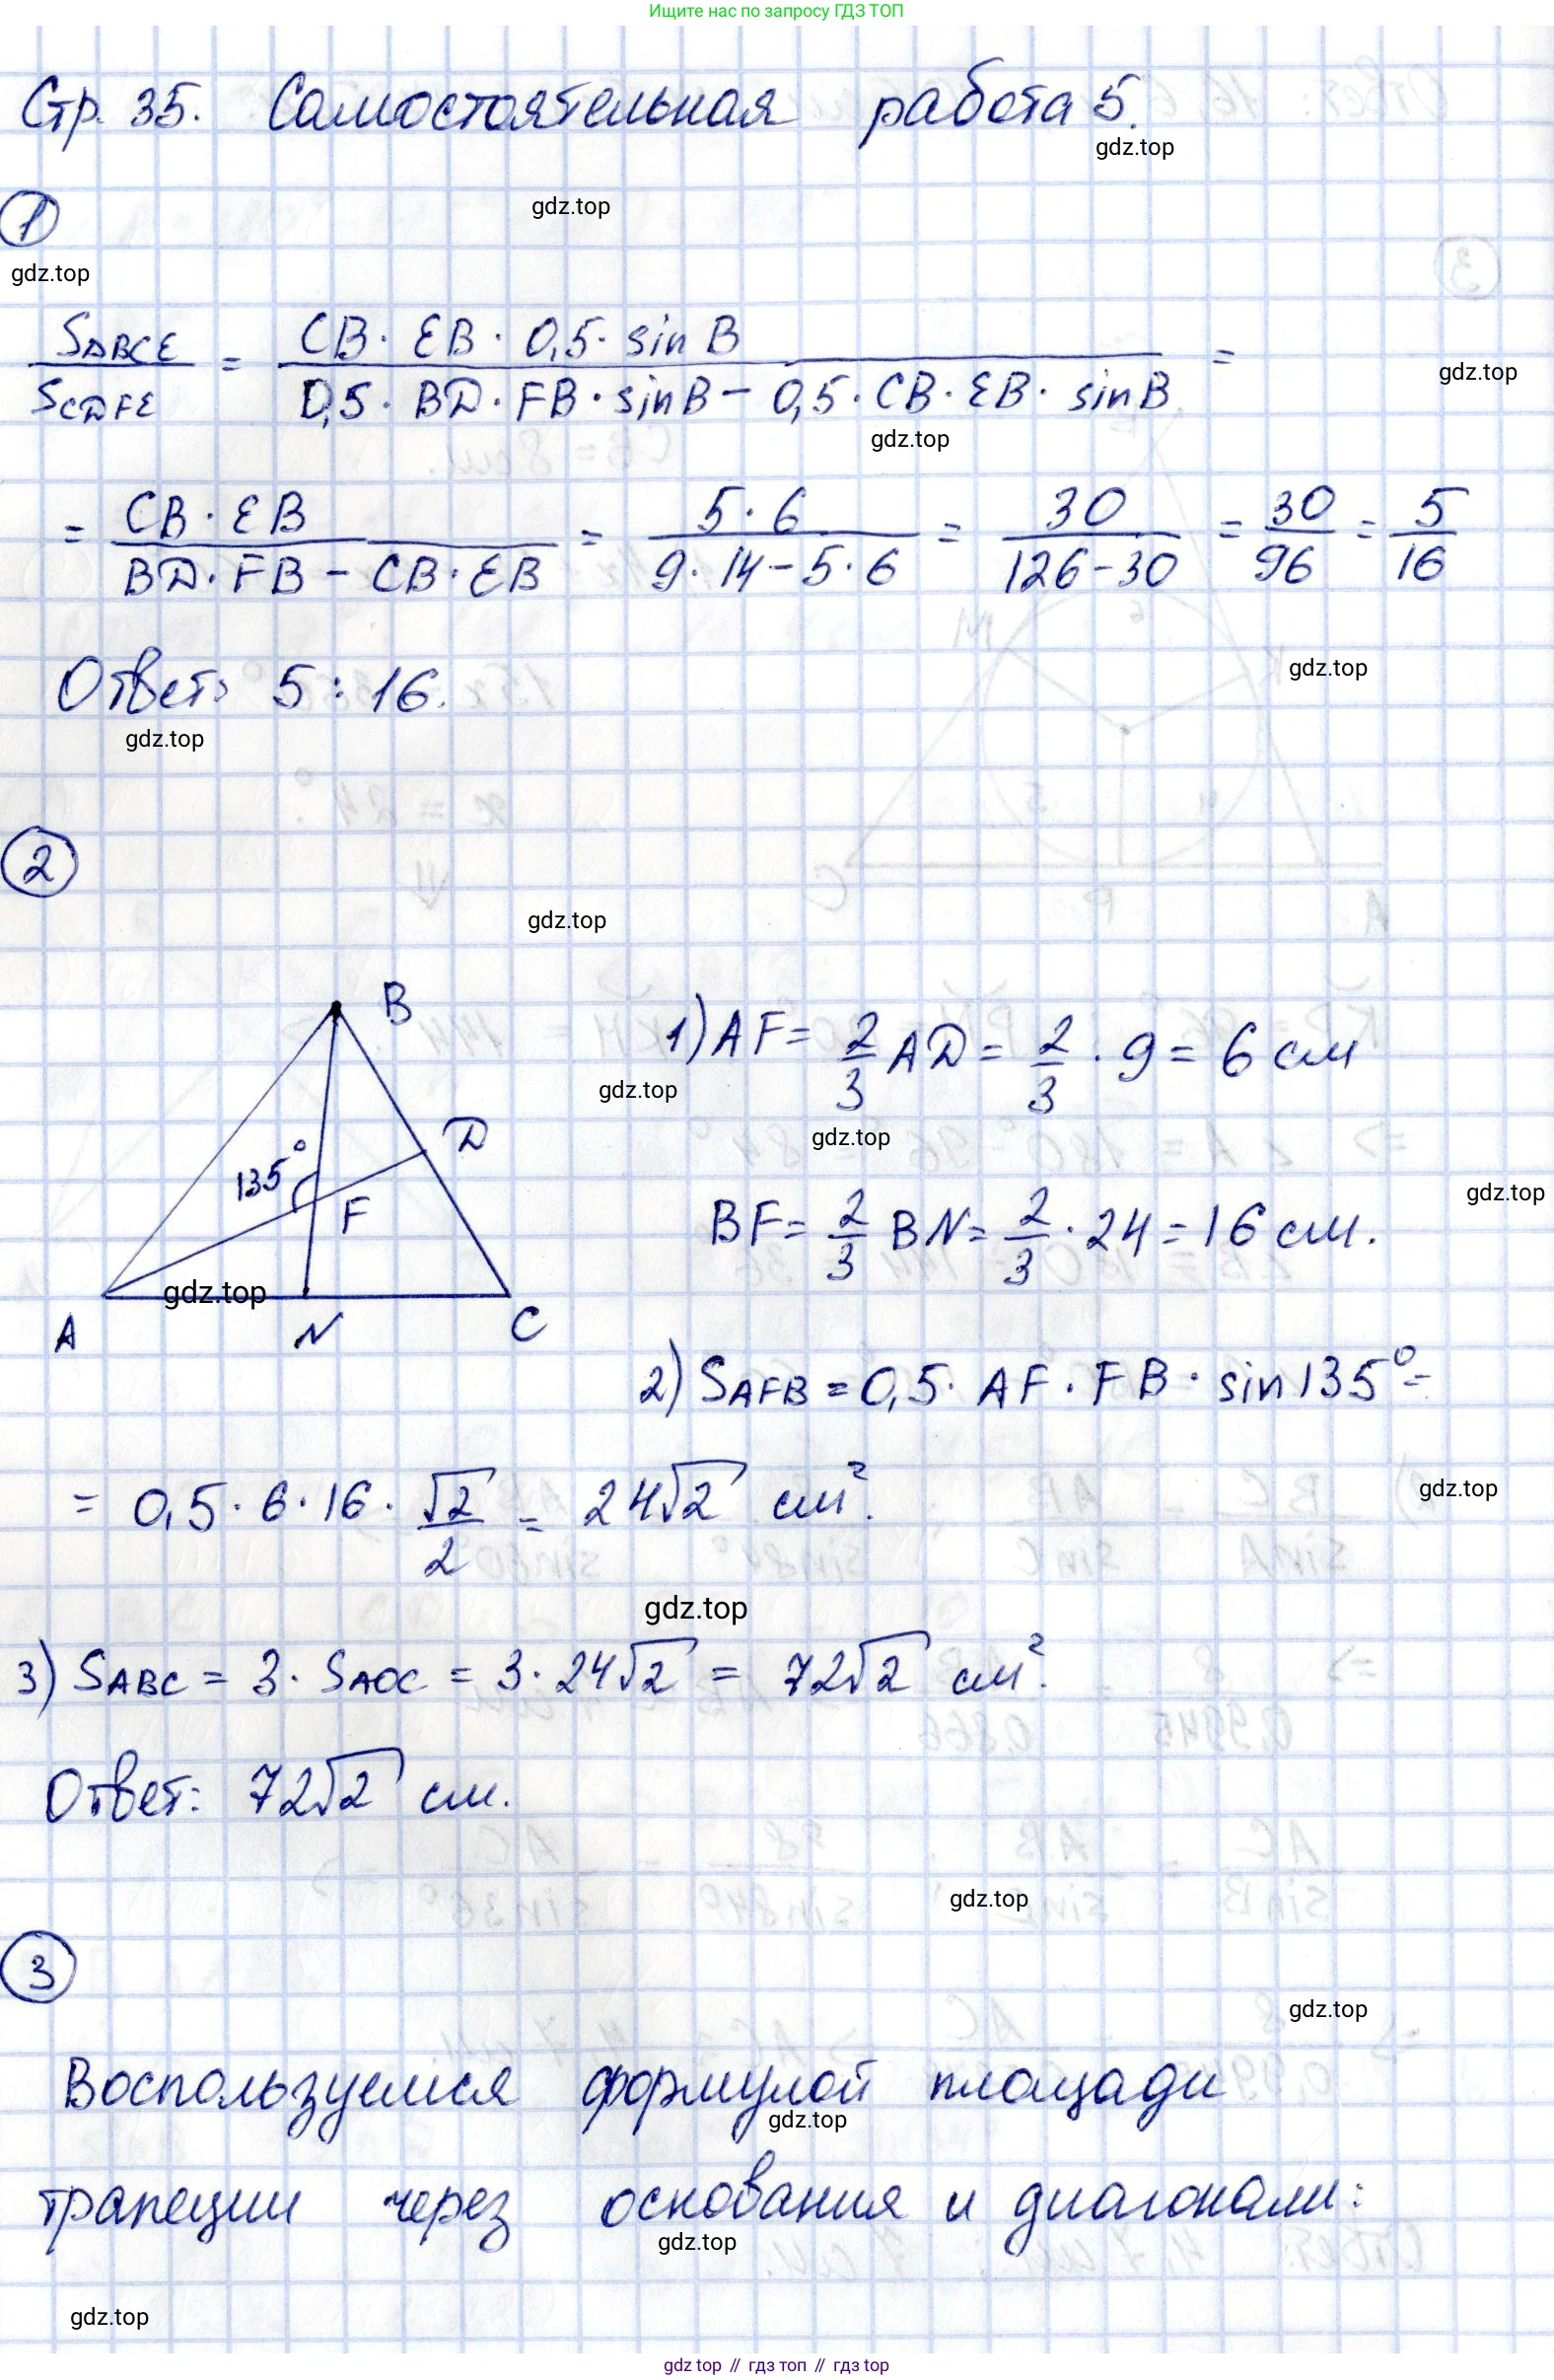 Ищите нас по запросу ГДЗ ТОП
Стр. 35. Самостоятельная работа 5.
gdz.top
gdz.top
1
gdz.top
S△BCE / SCDFE = CB · EB · 0,5 · sin B / 0,5 · BD · FB · sin B − 0,5 · CB · EB · sin B =
gdz.top
gdz.top
= CB · EB / BD · FB − CB · EB = 5 · 6 / 9 · 14 − 5 · 6 = 30 / 126 − 30 = 30 / 96 = 5 / 16
gdz.top
Ответ: 5 : 16.
gdz.top
2
gdz.top
B
1) AF = 2/3 AD = 2/3 · 9 = 6 см
gdz.top
gdz.top
D
135°
F
gdz.top
BF = 2/3 BN = 2/3 · 24 = 16 см.
gdz.top
A
N
C
2) SAFB = 0,5 · AF · FB · sin 135° =
gdz.top
= 0,5 · 6 · 16 · √2/2 = 24√2 см².
gdz.top
3) SABC = 3 · SAOC = 3 · 24√2 = 72√2 см².
Ответ: 72√2 см.
gdz.top
3
gdz.top
Воспользуемся формулой площади
gdz.top
трапеции через основания и диагонали:
gdz.top
gdz.top
gdz top // гдз топ // гдз top